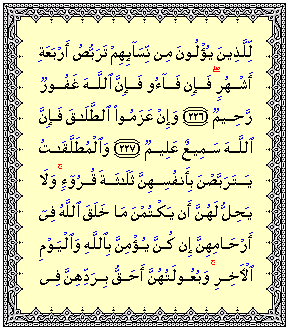 لِّلَّذِينَ يُؤْلُونَ مِن نِّسَآئِهِمْ تَرَبُّصُ أَرْبَعَةِ
أَشْهُرٍۖ فَإِن فَآءُو فَإِنَّ ٱللَّهَ غَفُورٌ
رَّحِيمٌ ﴿٢٢٦﴾ وَإِنْ عَزَمُوا۟ ٱلطَّلَـٰقَ فَإِنَّ
ٱللَّهَ سَمِيعٌ عَلِيمٌ ﴿٢٢٧﴾ وَٱلْمُطَلَّقَـٰتُ
يَتَرَبَّصْنَ بِأَنفُسِهِنَّ ثَلَـٰثَةَ قُرُوٓءٍۚ وَلَا
يَحِلُّ لَهُنَّ أَن يَكْتُمْنَ مَا خَلَقَ ٱللَّهُ فِىٓ
أَرْحَامِهِنَّ إِن كُنَّ يُؤْمِنَّ بِٱللَّهِ وَٱلْيَوْمِ
ٱلْـَٔاخِرِۚ وَبُعُولَتُهُنَّ أَحَقُّ بِرَدِّهِنَّ فِى